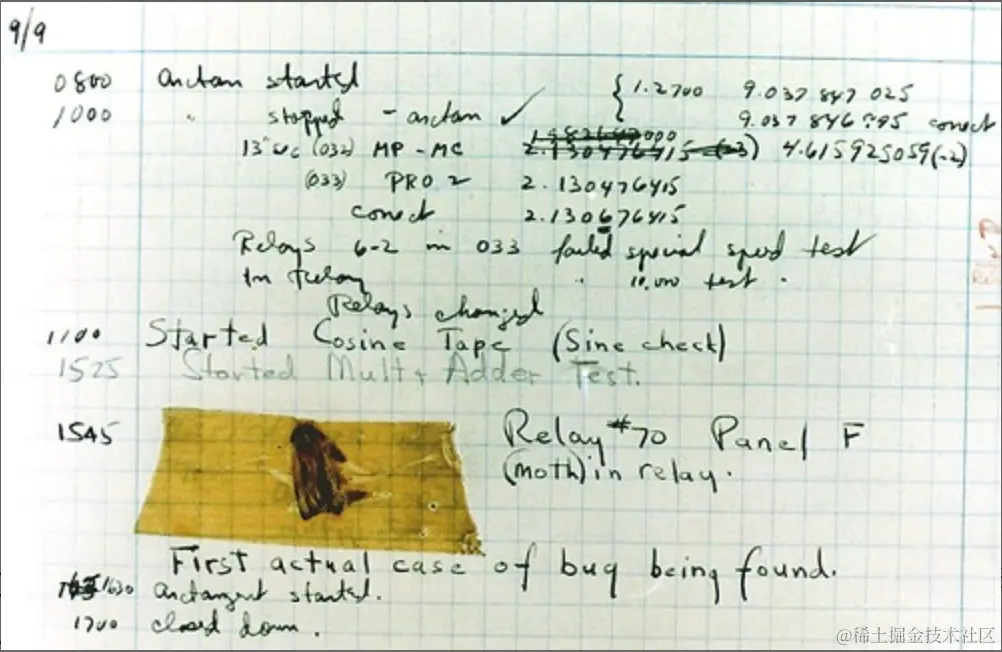 9/9
0800 arctan started { 1.2700 9.037 847 025
1000 " stopped - arctan ✓ 9.037 846 995 correct
13" uc (032) MP - MC 2.130476415 (-3) 4.615925059(-2)
(033) PRO 2 2.130476415
correct 2.130676415
Relays 6-2 in 033 failed special speed test
In Relay " 10,000 test .
Relays changed
1100 Started Cosine Tape (Sine check)
1525 Started Mult + Adder Test.
1545 Relay #70 Panel F
(moth) in relay.
First actual case of bug being found.
1630 arctangent started.
1700 closed down.
@稀土掘金技术社区